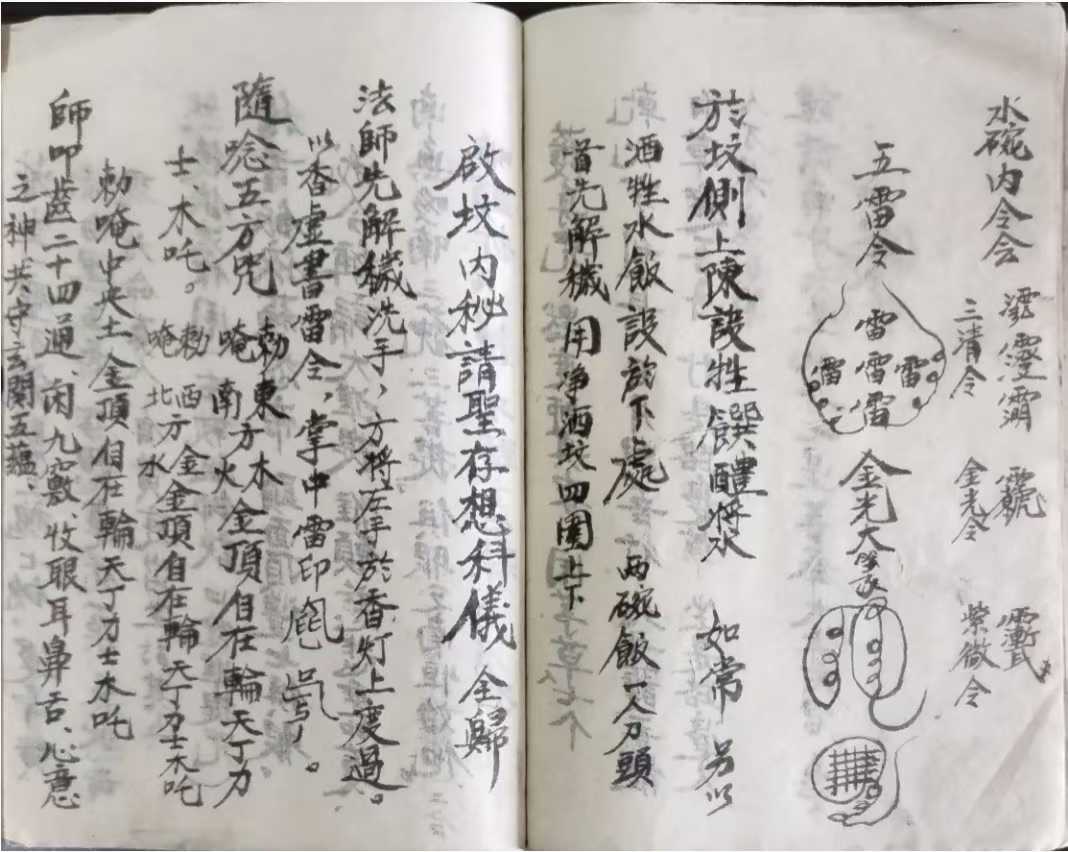 水碗内令会
三清令 金光令 紫微令
五雷令
雷雷雷雷雷雷
金光大
於坟側上陳設牲饌醴将水 如常 另以
酒牲水飯設於下處 两碗飯一分刀頭
首先解穢 用净洒坟四圍上下
啟坟内秘請聖存想科儀 全歸
法師先解穢洗手，方将左手於香灯上度過。
以香虚書雷令，掌中雷印
隨唸五方咒 勅唵東方木 南方火 金頂自在輪天丁力
士、木吒。 勅唵西方金 北方水 金頂自在輪天丁力士木吒
勅唵中央土 金頂自在輪天丁力士木吒
師叩齒二十四通、闭九竅、收眼耳鼻舌、心意
之神、共守玄関五蕴、